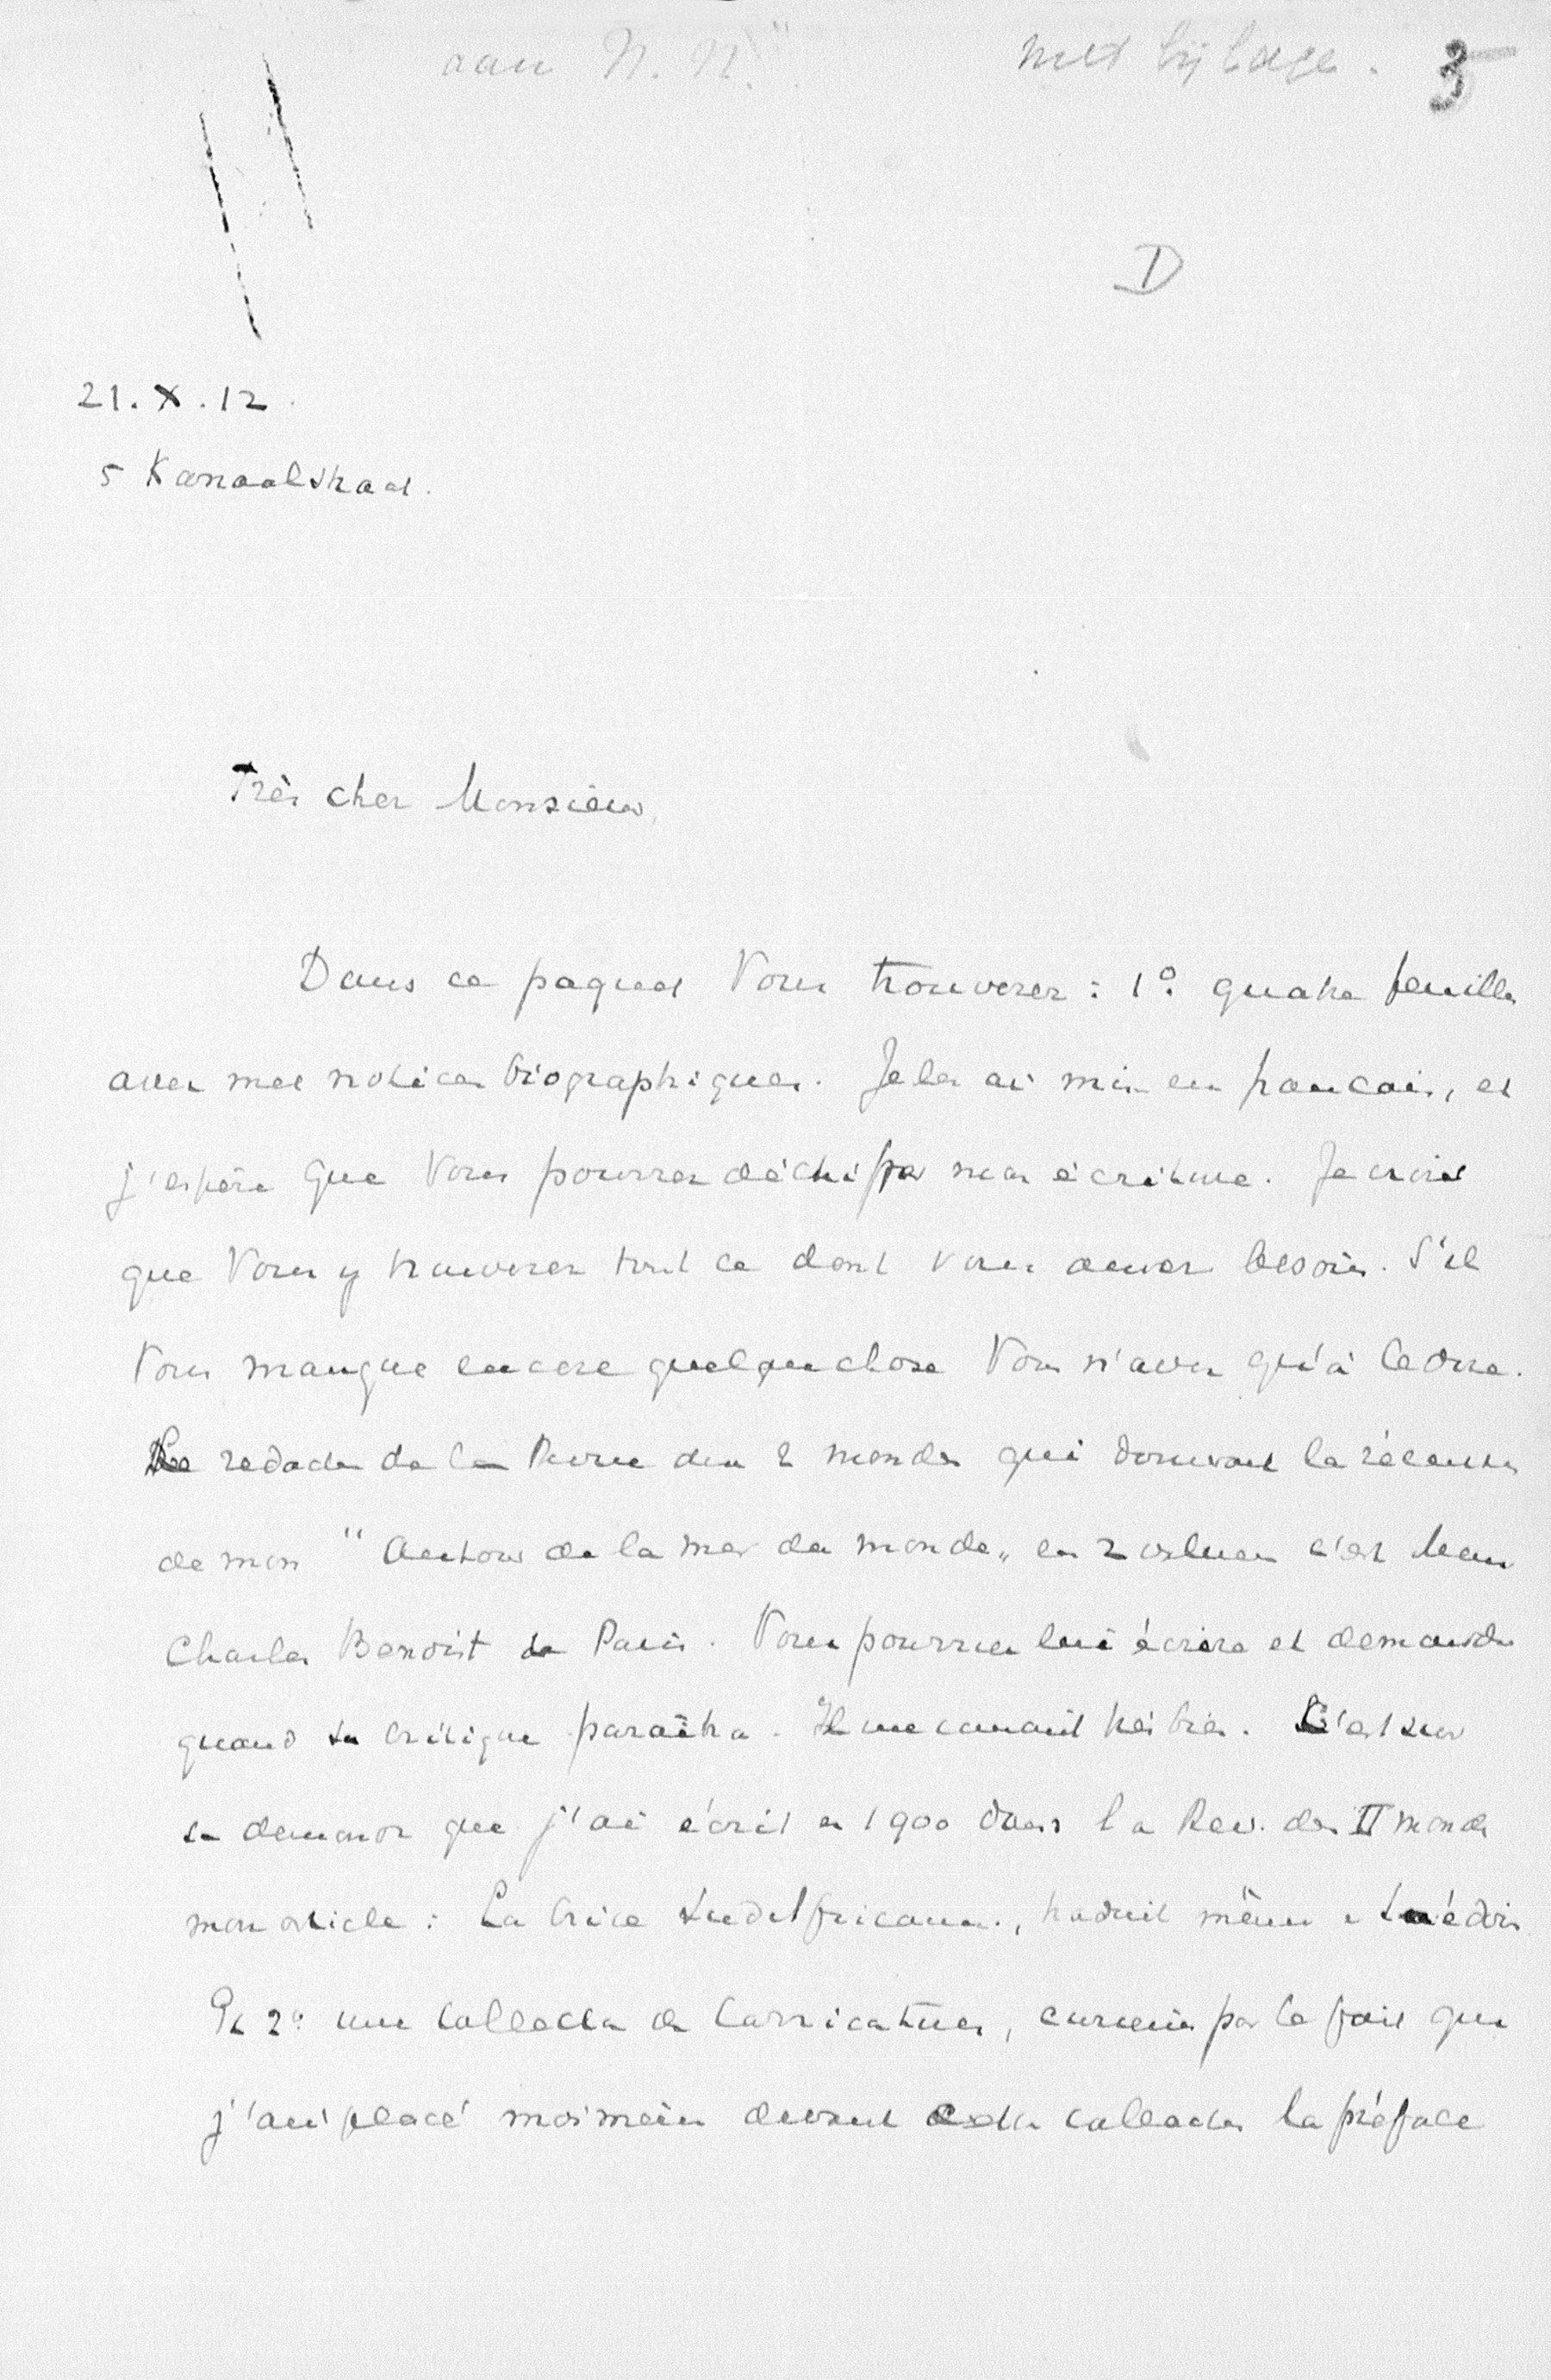 aan N.N. met bijlage. 3
D
21.X.12.
5 Kanaalstraat.
Très cher Monsieur,
Dans ce paquet Vous trouverez : 1º. quatre feuilles
avec mes notices biographiques. Je les ai mis en francais, et
j'espère que Vous pourrez déchiffrer mon écriture. Je crois
que Vous y trouverez tout ce dont vous aurez besoin. S'il
Vous manque encore quelque chose Vous n'avez qu'à le dire.
Le redacteur de la Revue des 2 mondes qui donnera la récension
de mon "Autour de la mer du monde„ en 2 volumes c'est Mons
Charles Benoist de Paris. Vous pourriez lui écrire et demander
quand sa critique paraîtra. Il me connait très bien. C'est sur
sa demande que j'ai écrit en 1900 dans la Rev. des II mondes
mon article : La Crise Sudafricaine, traduit même en Suédois
Et 2º une collection de Carricatures, curieuse par le fait que
j'ai placé moi même devant cette collection la préface